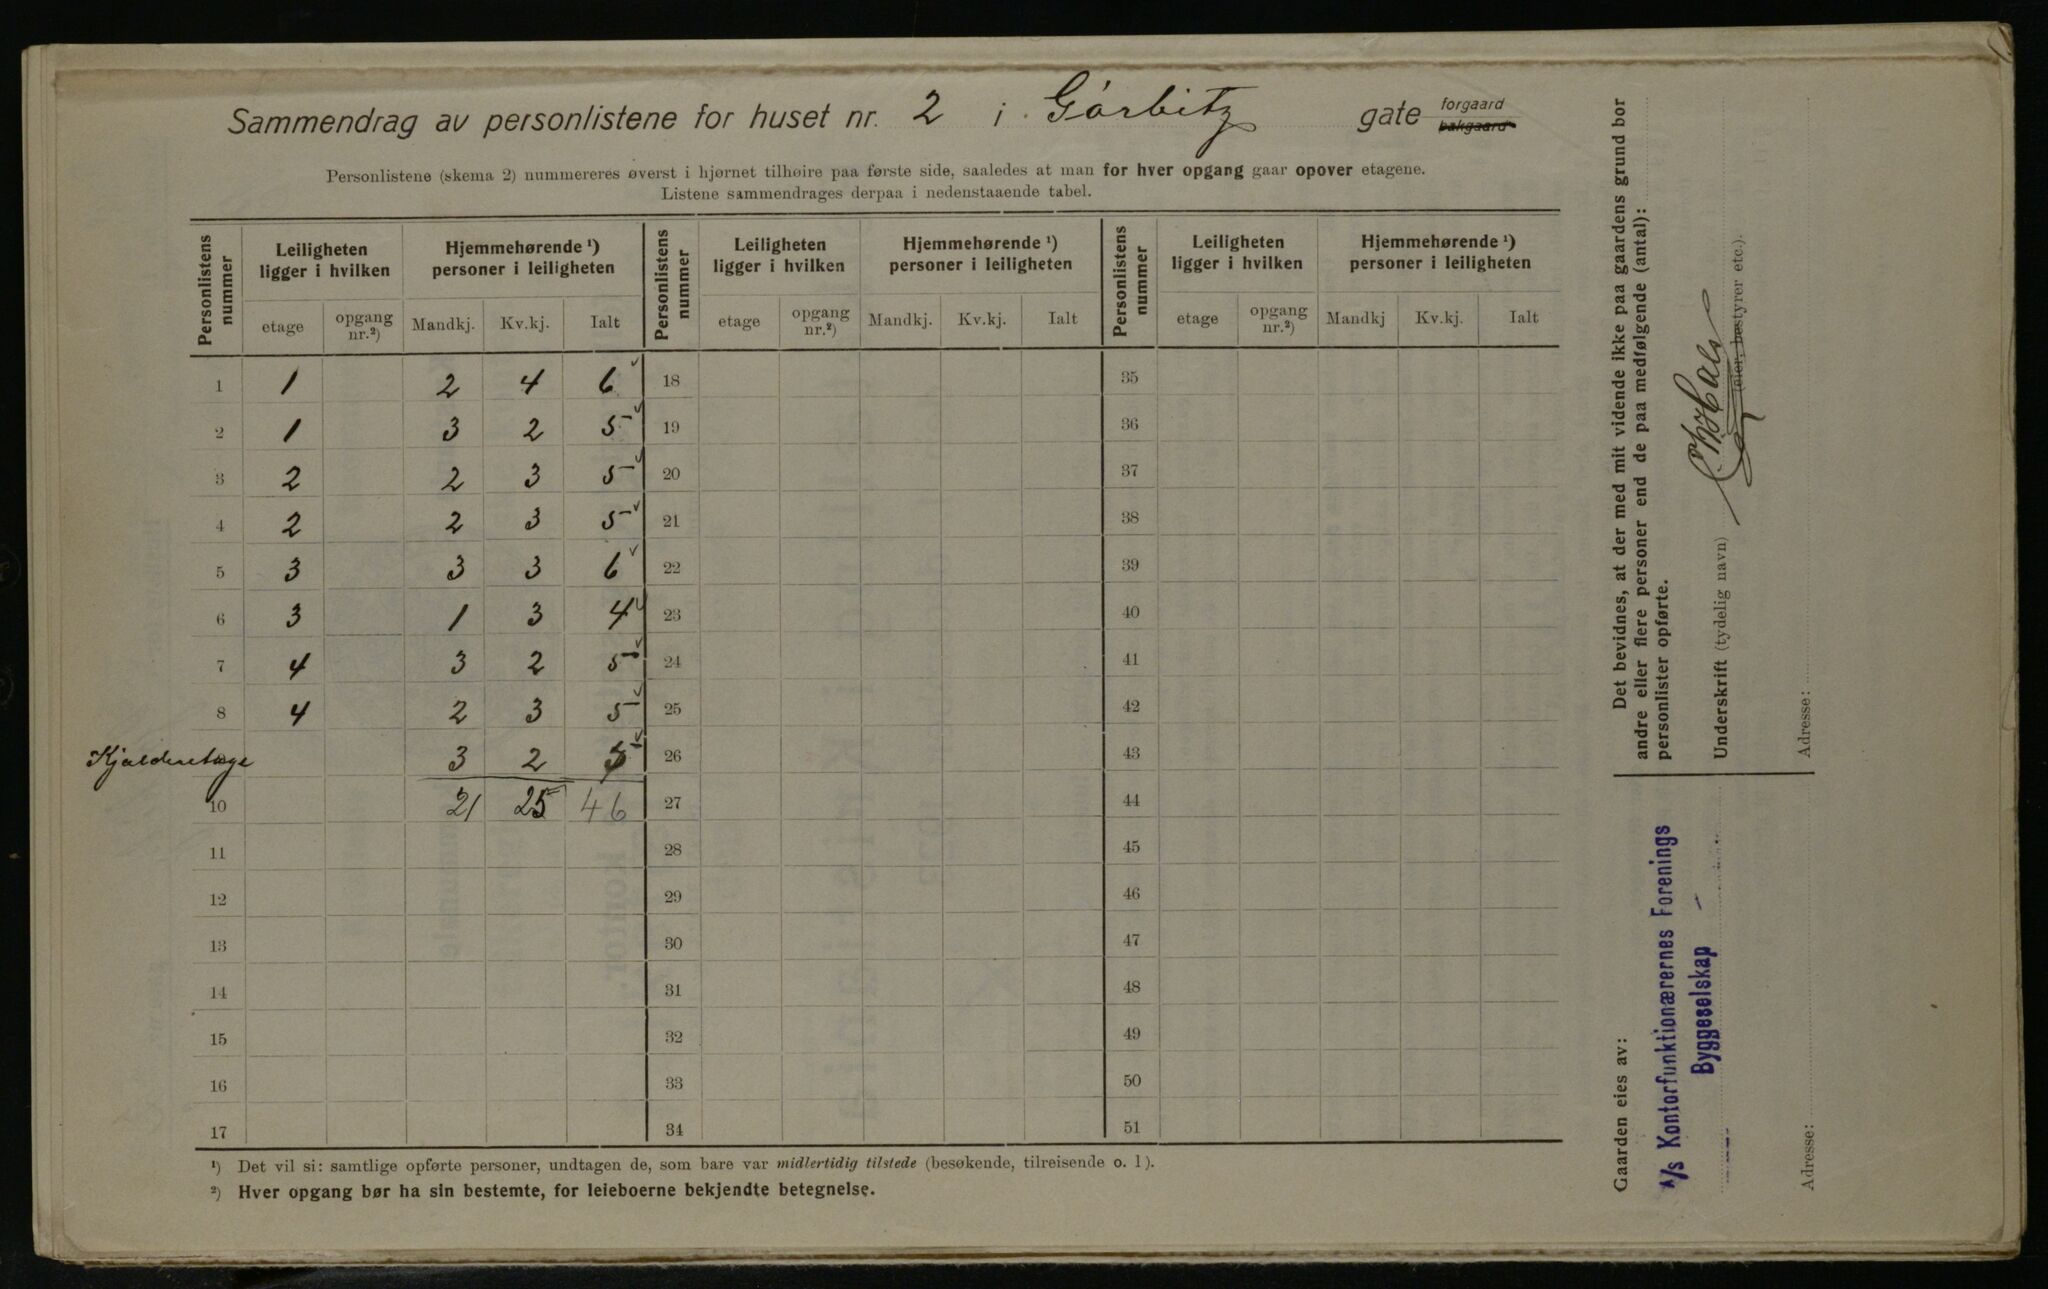 Sammendrag av personlistene for huset nr. 2 i Görbitz gate forgaard bakgaard
Personlistene (skema 2) nummereres øverst i hjørnet tilhøire paa første side, saaledes at man for hver opgang gaar opover etagene.
Listene sammendrages derpaa i nedenstaaende tabel.
Personlistens nummer Leiligheten ligger i hvilken Hjemmehørende ¹) personer i leiligheten Personlistens nummer Leiligheten ligger i hvilken Hjemmehørende ¹) personer i leiligheten Personlistens nummer Leiligheten ligger i hvilken Hjemmehørende ¹) personer i leiligheten
etage opgang nr.²) Mandkj. Kv.kj. Ialt etage opgang nr.²) Mandkj. Kv.kj. Ialt etage opgang nr.²) Mandkj Kv.kj. Ialt
1 1 2 4 6 18 35
2 1 3 2 5 19 36
3 2 2 3 5 20 37
4 2 2 3 5 21 38
5 3 3 3 6 22 39
6 3 1 3 4 23 40
7 4 3 2 5 24 41
8 4 2 3 5 25 42
Kjælderetage 3 2 5 26 43
10 21 25 46 27 44
11 28 45
12 29 46
13 30 47
14 31 48
15 32 49
16 33 50
17 34 51
¹) Det vil si: samtlige opførte personer, undtagen de, som bare var midlertidig tilstede (besøkende, tilreisende o. l).
²) Hver opgang bør ha sin bestemte, for leieboerne bekjendte betegnelse.
Det bevidnes, at der med mit vidende ikke paa gaardens grund bor
andre eller flere personer end de paa medfølgende (antal):
personlister opførte.
Underskrift (tydelig navn)
(eier, bestyrer etc.).
Adresse:
Gaarden eies av:
A/s Kontorfunktionærernes Forenings
Byggeselskap
Adresse: